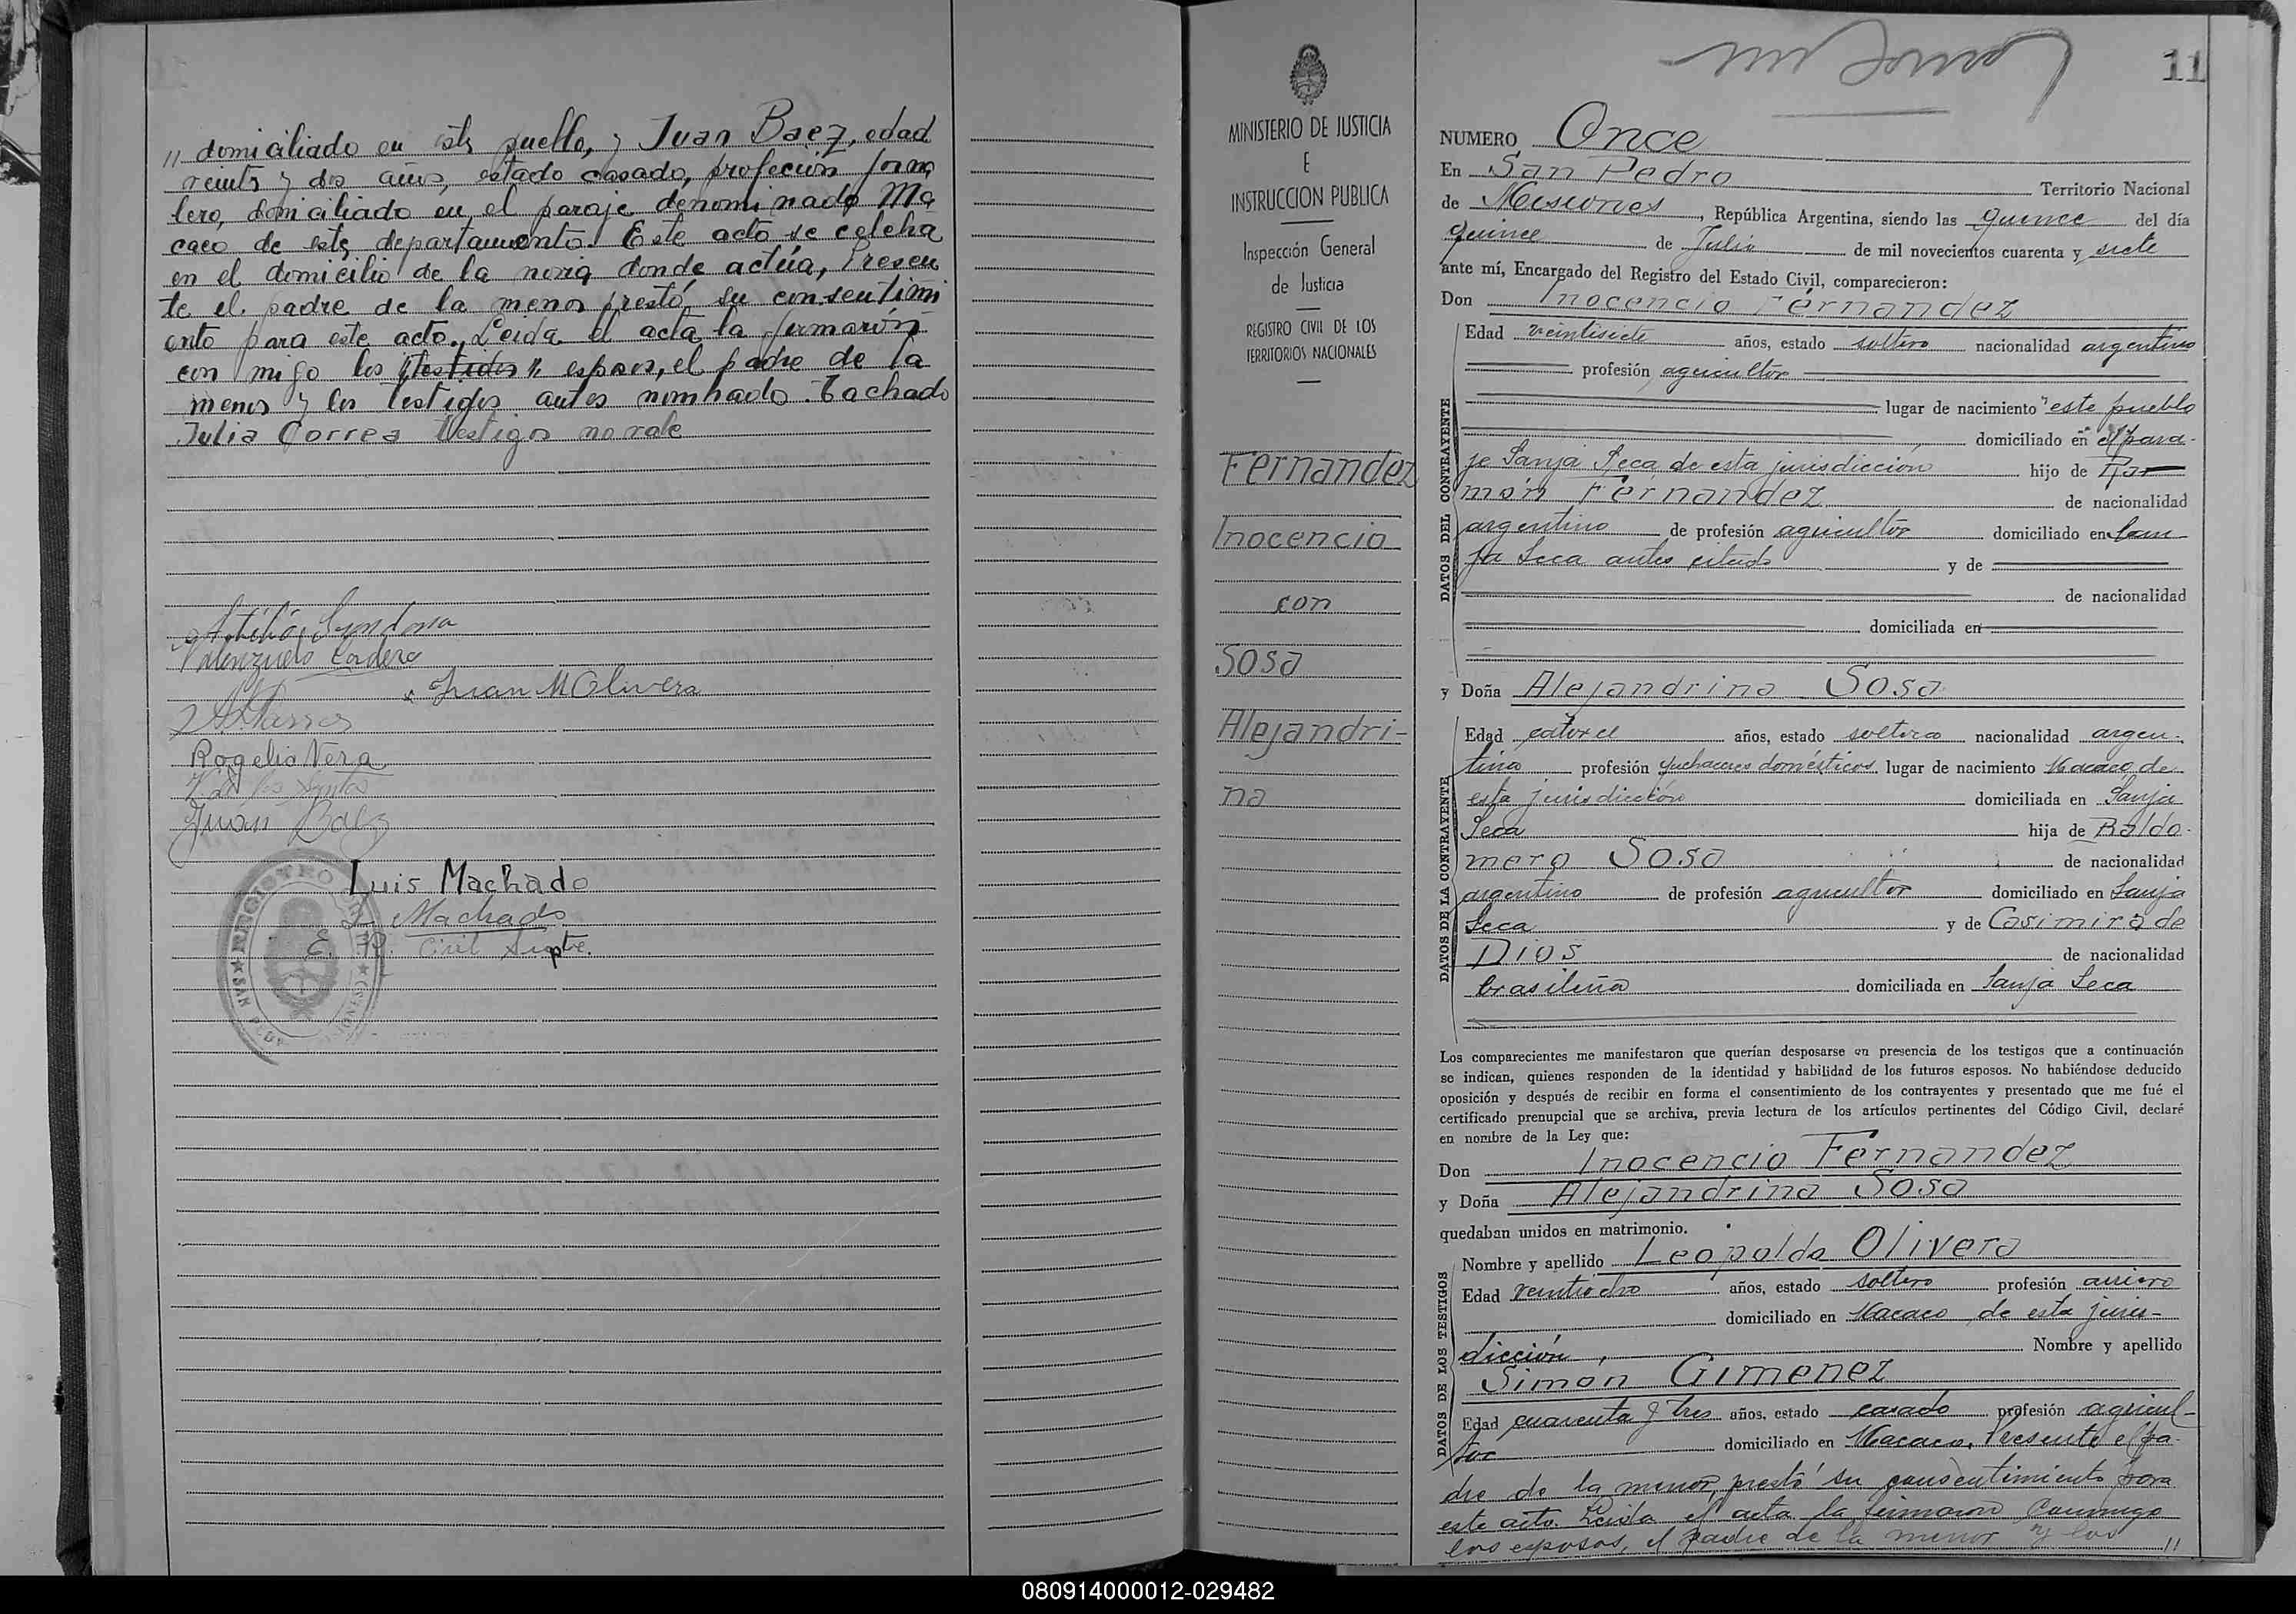 " domiciliado en este pueblo, y Juan Baez, edad
veinte y dos años, estado casado, profeción jorna
lero, domiciliado en el paraje denominado Ma
caco de este departamento. Este acto se celebra
en el domicilio de la novia donde actúa, Presen
te el padre de la menor prestó su consentimi
ento para este acto. Leida el acta la firmarón
con migo los "testidos" esposos, el padre de la
menor y los testigos antes nombrado. Tachado
Julia Correa testigos no vale
Juan M Olivera
Rogelio Vera
Juan Baez
Luis Machado
L Machado
E. R. Civil Supte.
REGISTRO
SAN
MINISTERIO DE JUSTICIA
E
INSTRUCCION PUBLICA
Inspección General
de Justicia
REGISTRO CIVIL DE LOS
TERRITORIOS NACIONALES
Fernandez
Inocencio
con
Sosa
Alejandri-
na
11
NUMERO Once
En San Pedro Territorio Nacional
de Misiones, República Argentina, siendo las quince del día
quince de Julio de mil novecientos cuarenta y siete
ante mí, Encargado del Registro del Estado Civil, comparecieron:
Don Inocencio Fernandez
DATOS DEL CONTRAYENTE
Edad veintisiete años, estado soltero nacionalidad argentino
profesión agricultor
lugar de nacimiento este pueblo
domiciliado en el para-
je Sanja Seca de esta jurisdicción hijo de Ra
món Fernandez de nacionalidad
argentino de profesión agricultor domiciliado en San
ja Seca antes citado y de
de nacionalidad
domiciliada en
y Doña Alejandrina Sosa
DATOS DE LA CONTRAYENTE
Edad catorce años, estado soltera nacionalidad argen-
tina profesión quehaceres domésticos lugar de nacimiento Macaco de
esta jurisdicción domiciliada en Sanja
Seca hija de Baldo-
mero Sosa de nacionalidad
argentino de profesión agricultor domiciliado en Sanja
Seca y de Casimira de
Dios de nacionalidad
brasileña domiciliada en Sanja Seca
Los comparecientes me manifestaron que querían desposarse en presencia de los testigos que a continuación
se indican, quienes responden de la identidad y habilidad de los futuros esposos. No habiéndose deducido
oposición y después de recibir en forma el consentimiento de los contrayentes y presentado que me fué el
certificado prenupcial que se archiva, previa lectura de los artículos pertinentes del Código Civil, declaré
en nombre de la Ley que:
Don Inocencio Fernandez
y Doña Alejandrina Sosa
quedaban unidos en matrimonio.
DATOS DE LOS TESTIGOS
Nombre y apellido Leopoldo Olivera
Edad veintiocho años, estado soltero profesión arriero
domiciliado en Macaco de esta juris-
dicción, Nombre y apellido
Simón Gimenez
Edad cuarenta y tres años, estado casado profesión agricul-
tor domiciliado en Macaco. Presente el pa-
dre de la menor, prestó su consentimiento para
este acto. Leida el acta la firmaron conmigo
los esposos, el padre de la menor y los "
080914000012-029482